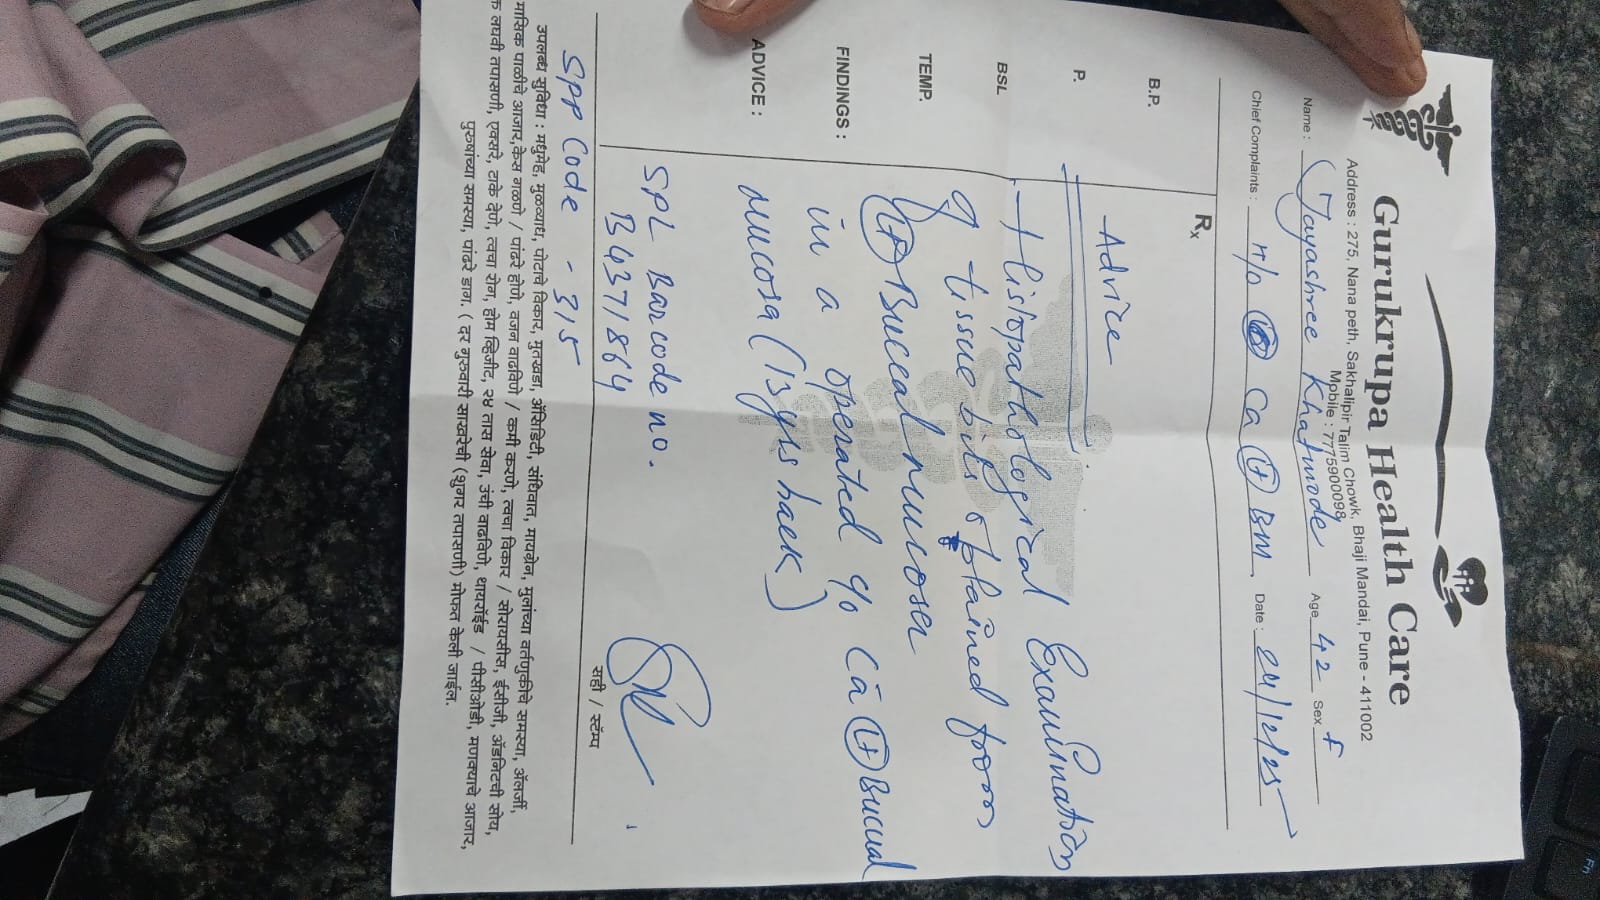 Gurukrupa Health Care
Address : 275, Nana peth, Sakhalipir Talim Chowk, Bhaji Mandai, Pune - 411002
Mobile : 7775900098
Name : Jayashree Khatmode Age 42 Sex F
Chief Complaints : H/o Ca (Lt) BM. Date : 24/12/25
Rx
B.P.
P.
BSL
TEMP.
FINDINGS :
ADVICE :
Advice
Histopathological Examination
of tissue bits obtained from
(Lt) Buccal mucosa
in a operated c/o Ca (Lt) Buccal
mucosa (13 yrs back)
SPL Barcode no.
B4371864
SPP Code - 315
सही / स्टॅम्प
उपलब्ध सुविधा : मधुमेह, मुळव्याध, पोटाचे विकार, मुतखडा, ॲसिडिटी, संधिवात, मायग्रेन, मुलांच्या वर्तणुकीचे समस्या, ॲलर्जी,
मासिक पाळीचे आजार,केस गळणे / पांढरे होणे, वजन वाढविणे / कमी करणे, त्वचा विकार / सोरायसीस, ईसीजी, ॲडमिटची सोय,
लघवी तपासणी, एक्सरे, टाके देणे, त्वचा रोग, होम व्हिजीट, २४ तास सेवा, उंची वाढविणे, थायरॉईड / पीसीओडी, मणक्याचे आजार,
पुरुषाच्या समस्या, पांढरे डाग. ( दर गुरुवारी सायरेसी (शुगर तपासणी) मोफत केली जाईल.
Fn